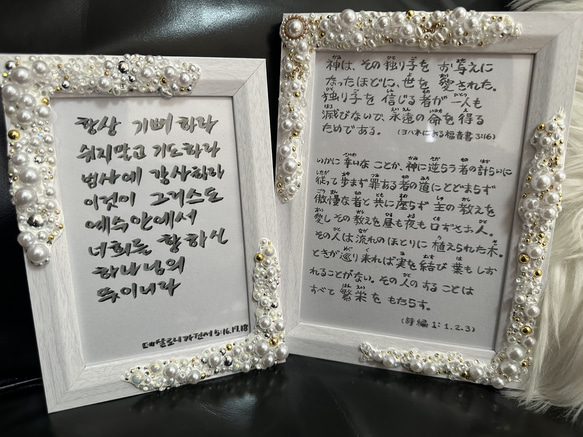 항상 기뻐하라
쉬지말고 기도하라
범사에 감사하라
이것이 그리스도
예수안에서
너희를 향하신
하나님의
뜻이니라
데살로니가전서 5:16,17,18
神は、その独り子を お与えに
なったほどに、世を 愛された。
独り子を 信じる者が 一人も
滅びないで、永遠の命を得る
ためである。(ヨハネによる福音書3:16)
いかに幸いな ことか、神に逆らう者の計らいに
従って歩まず 罪ある者の道にとどまらず
傲慢な者と共に座らず 主の教えを
愛しその教えを昼も夜も口ずさむ人。
その人は流れのほとりに 植えられた木。
ときが巡り来れば実を結び 葉もしお
れることがない。その人の することは
すべて 繁栄を もたらす。
(詩編 1:1.2.3)